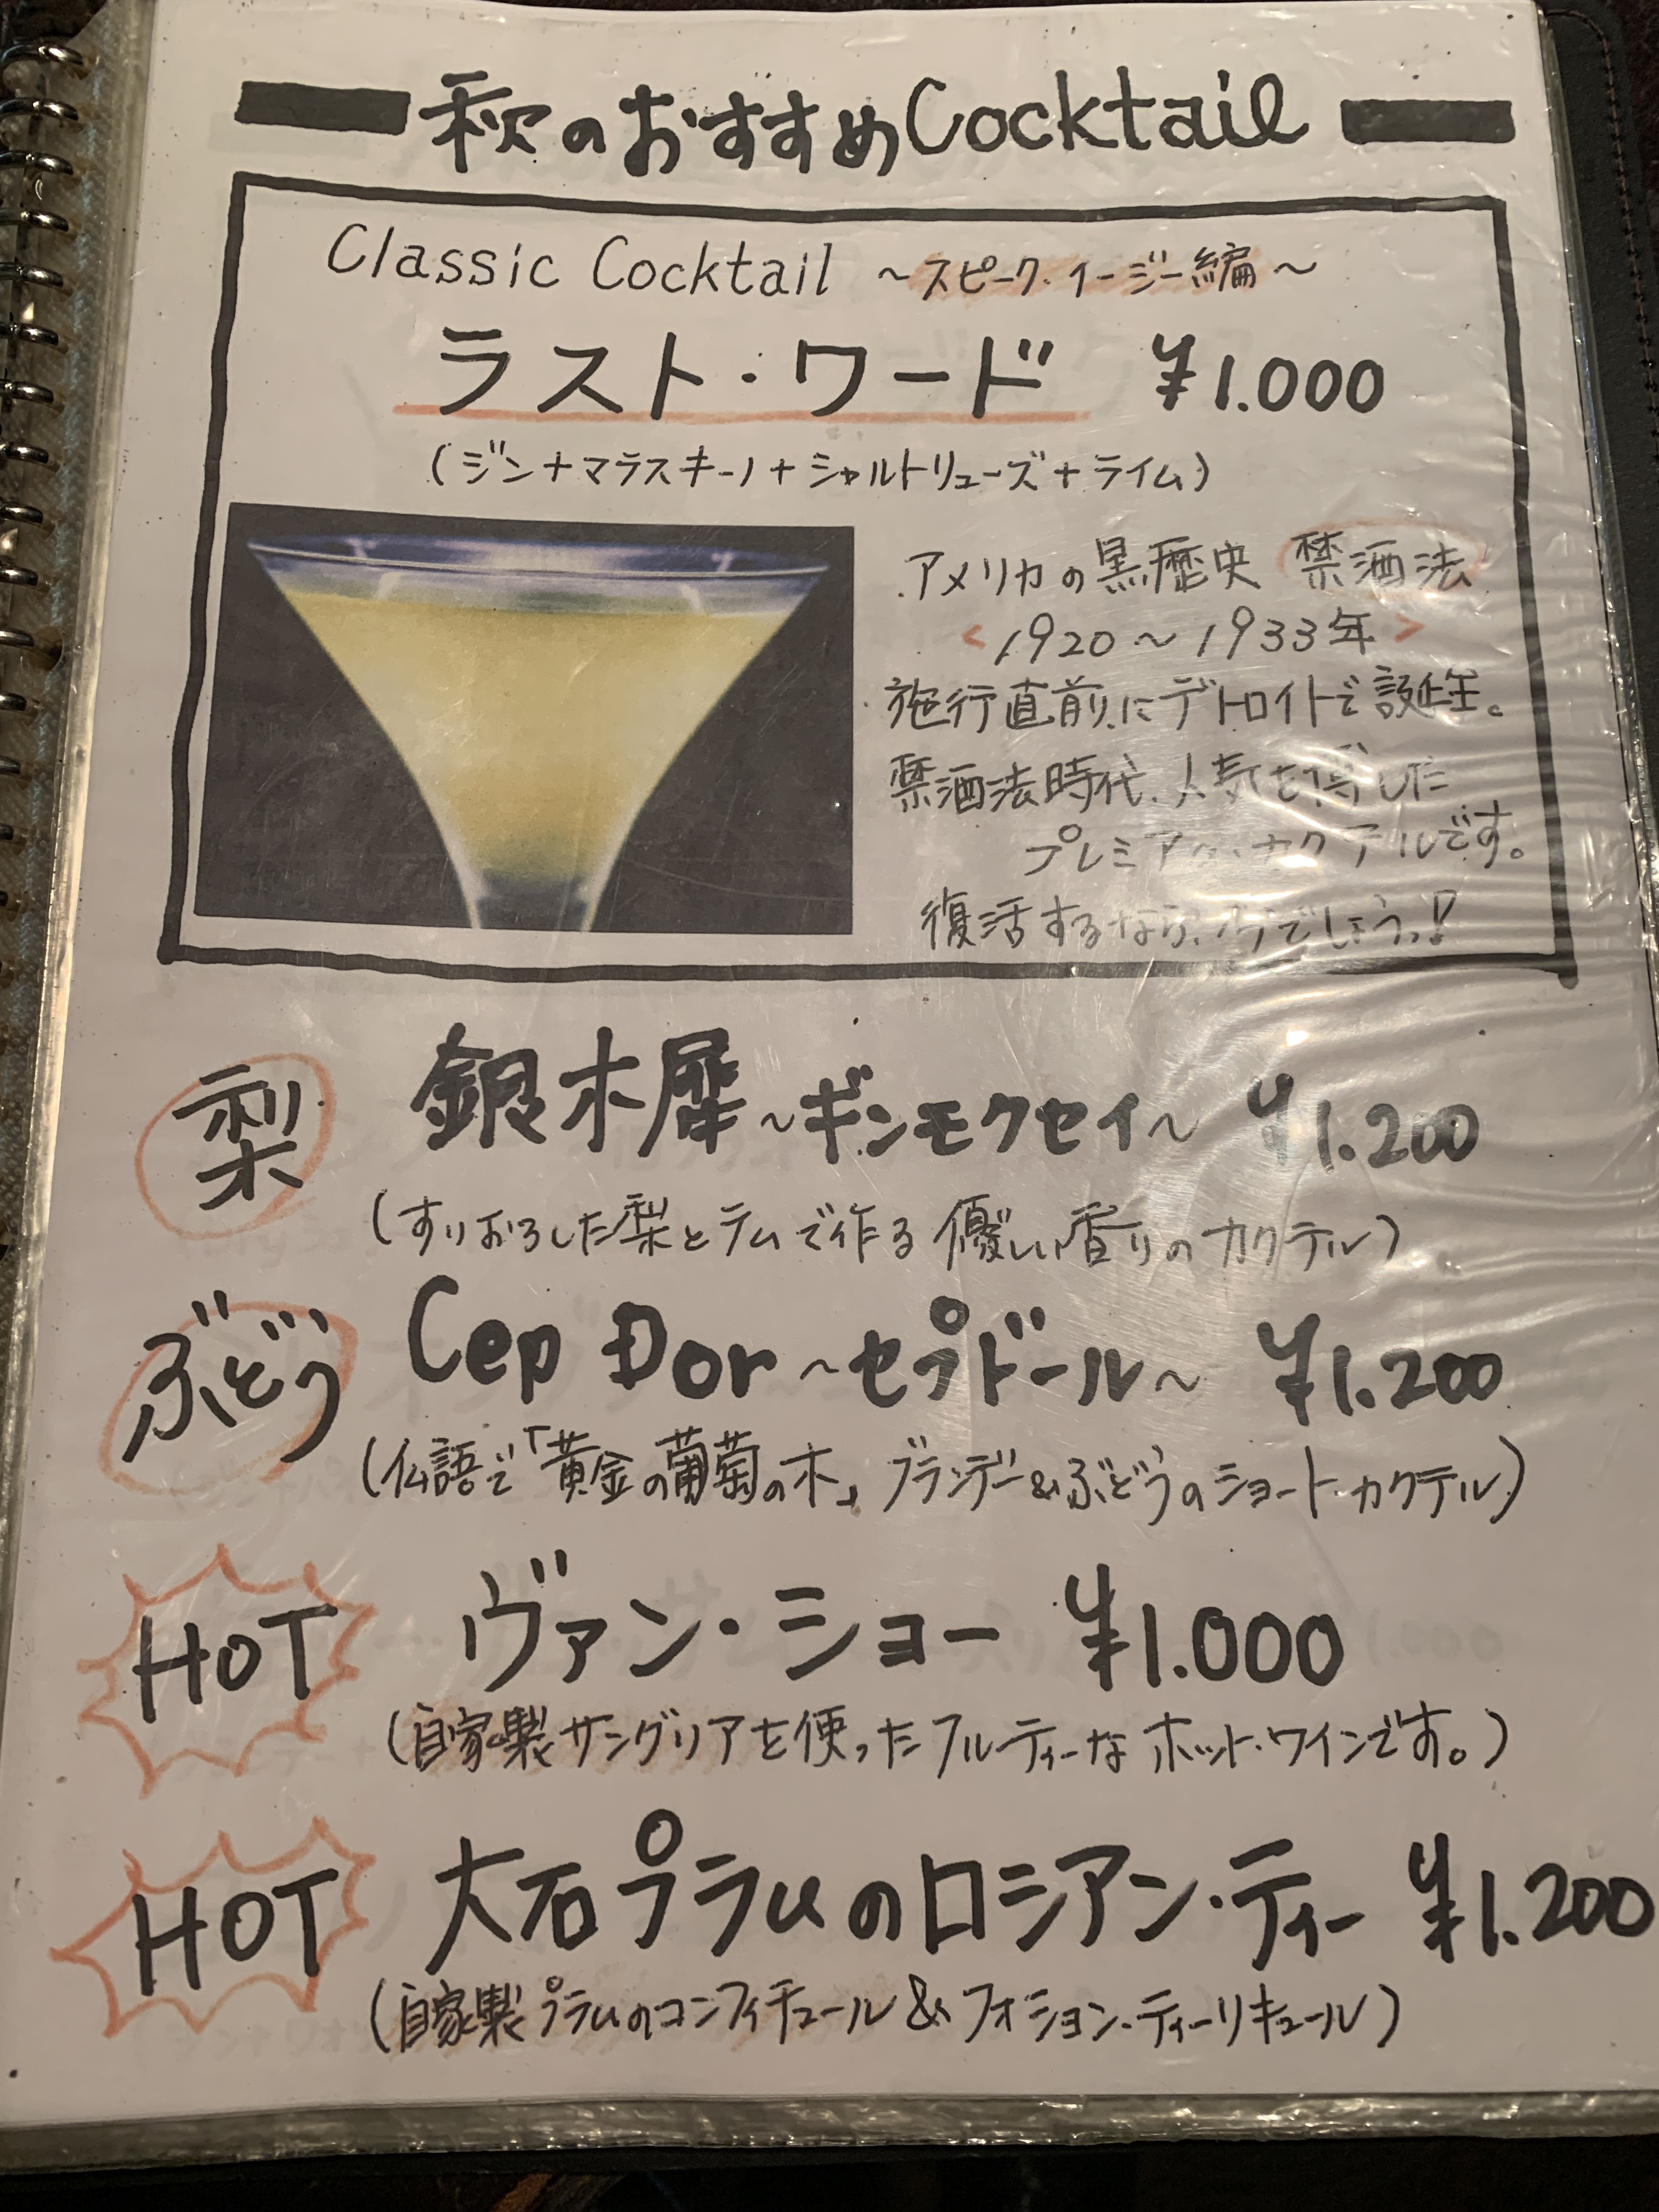 秋のおすすめCocktail
Classic Cocktail ～スピーク・イージー編～
ラスト・ワード ¥1.000
(ジン+マラスキーノ+シャルトリューズ+ライム)
アメリカの黒歴史 禁酒法
<1920～1933年>
施行直前にデトロイトで誕生。
禁酒法時代、人気を博した
プレミアム・カクテルです。
復活するなら、今でしょうっ!
梨 銀木犀～ギンモクセイ～ ¥1.200
(すりおろした梨とラムで作る優しい香りのカクテル)
ぶどう Cep Dor～セプドール～ ¥1.200
(仏語で「黄金の葡萄の木」ブランデー&ぶどうのショートカクテル)
HOT ヴァン・ショー ¥1.000
(自家製サングリアを使ったフルーティーなホット・ワインです。)
HOT 大石プラムのロシアン・ティー ¥1.200
(自家製プラムのコンフィチュール&フォション・ティーリキュール)